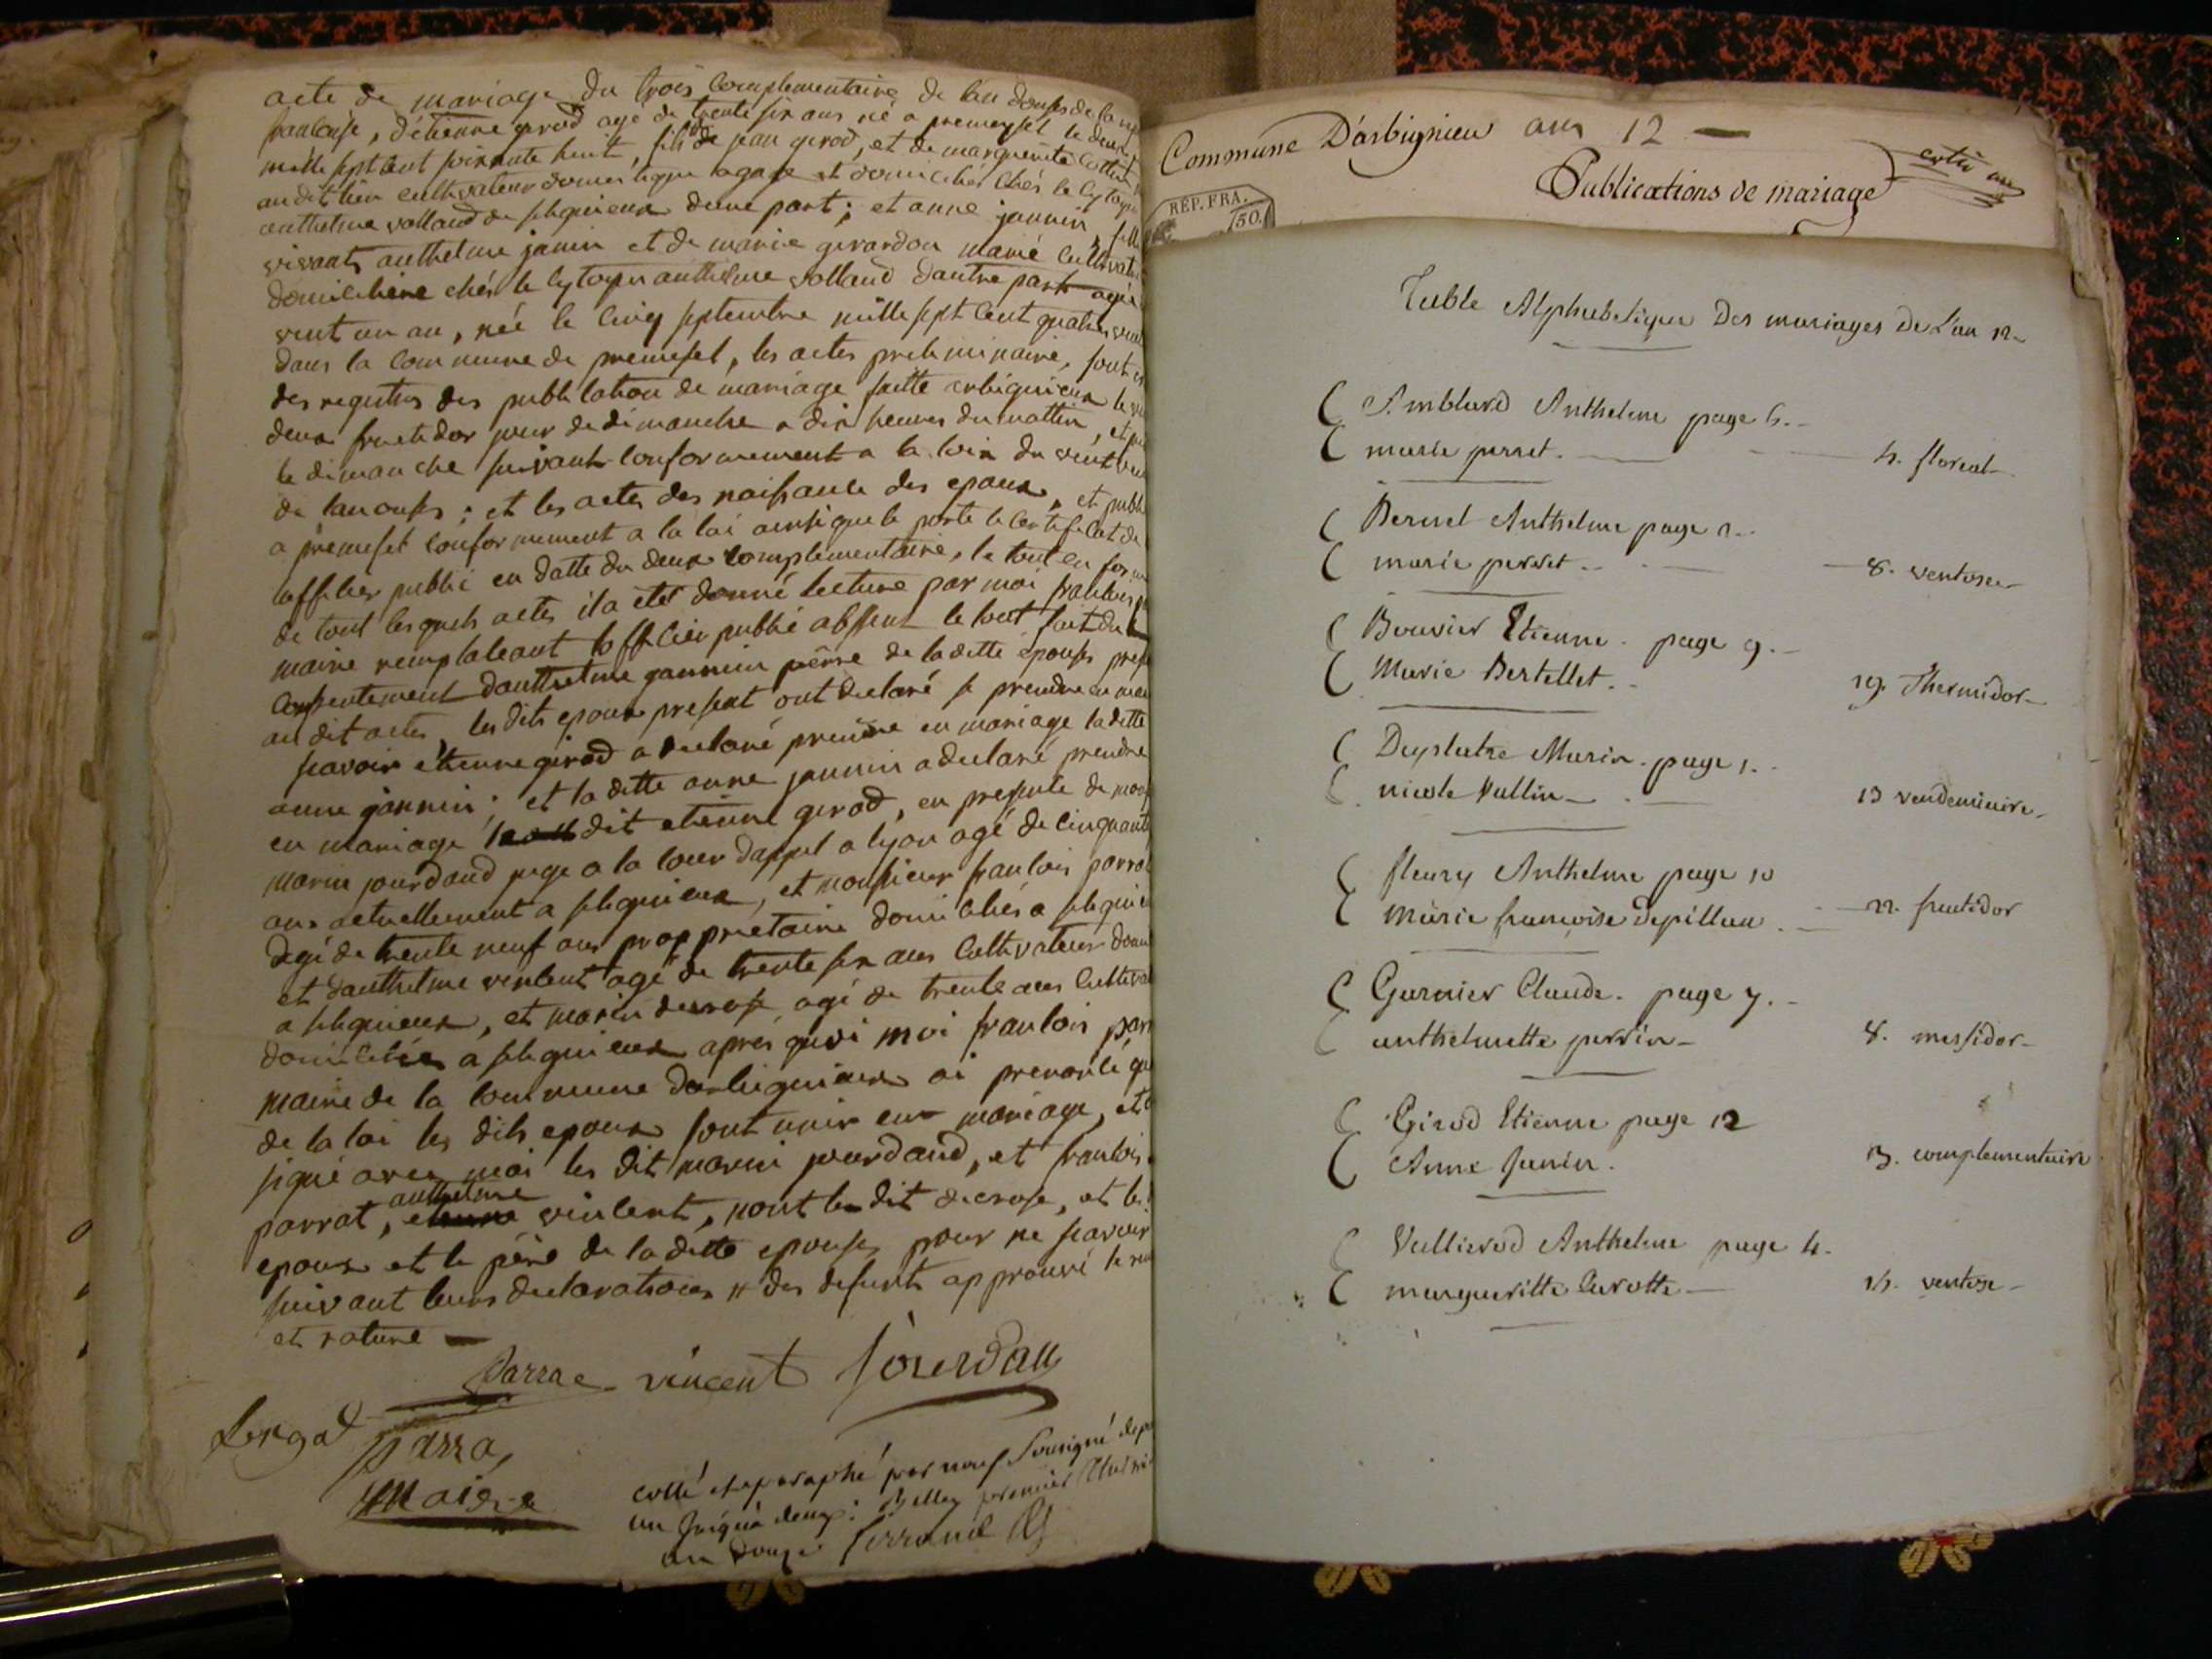 acte de mariage du trois complementaire de lan douse de la
francoise, d'étienne girod agé de trente six ans né a premeysel le deux
mille sept cent soixante huit, fils de jean girod, et de marguerite
au dit lieu cultivateur domestique et domicilié chés le cytoyen
anthelme volland de seligneux dune part; et anne jannin, fille
vivants anthelme janin et de marie girardon marié cultivateur
domiciliere chés le cytoyen anthelme volland dautre part agée
vent un an, née le cinq septembre mille sept cent quatre vent
dans la commune de premesel, les actes preliminaire, sont
des registres des publication de mariage faitte arbignieux le
deux fructidor jour de dimanche a dix heures du mattin, et
le dimanche suivant conformement a la loix du vent
de lan onse; et les actes des naissance des epoux, et publi
a premesel conformement a la loi ainsi que le porte le certificat de
lofficier public en datte du deux complementaire, le tout en forme
de tout lesquels actes il a eté donné lecture par moi francois
maire remplaceant lofficier public absent le tout fait du
consentement danthelme jannin père de la dette épouse
au dit actes, les dits epoux present ont declaré se prendre en
scavoir étienne girod a declaré prendre en mariage la dette
anne jannin; et la dette anne jannin a declaré prendre
en mariage le dit etienne girod, en presence de
marin jourdand juge a la cour dappel a lyon agé de cinquante
ans actuellement a seligneux, et monsieur francois parrat
agé de trente neuf ans proppriétaire domiciliés a seligneux
et danthelme vincent agé de trente six ans cultivateur
a seligneux, et marin decrose agé de trente ans
domiciliés a seligneux aprés quoi moi francois
maire de la commune darbignieux ai prenoncé
de la loi les dits epoux sont unis en mariage, et
signé avec moi les dit marin jourdand, et francois
parrat, anthelme vincent, nont le dit decrose, et les
epoux et le père de la dette epouse pour ne scavoir
suivant leurs declarations # des defunts approuvé le
et rature
Parrat vincent Jourdan
Parra
maire
cotté et paraphé par nous Sousigné
Belley premier
an douze
Commune D'arbignieu an 12
Publications de mariage
REP. FRA.
50.
Table Alphabetique Des mariages de L'an 12
Amblard Anthelme page 6.
marie perret. 4. floreal
Bernet Anthelme page 2.
marie perret 8. ventose
Bouvier Etienne. page 9.
Marie Bertellet. 19. Thermidor
Duplatre Marin. page 1.
nicole Vullin 13 vendemiaire.
fleury Anthelme page 10
Marie françoise depillon 22. fructidor
Garnier Claude. page 7.
anthelmette perrin 8. messidor
Girod Etienne page 12
Anne Janin. 3. complementaire
Vullierod Anthelme page 4.
margueritte Curotte 14. ventose